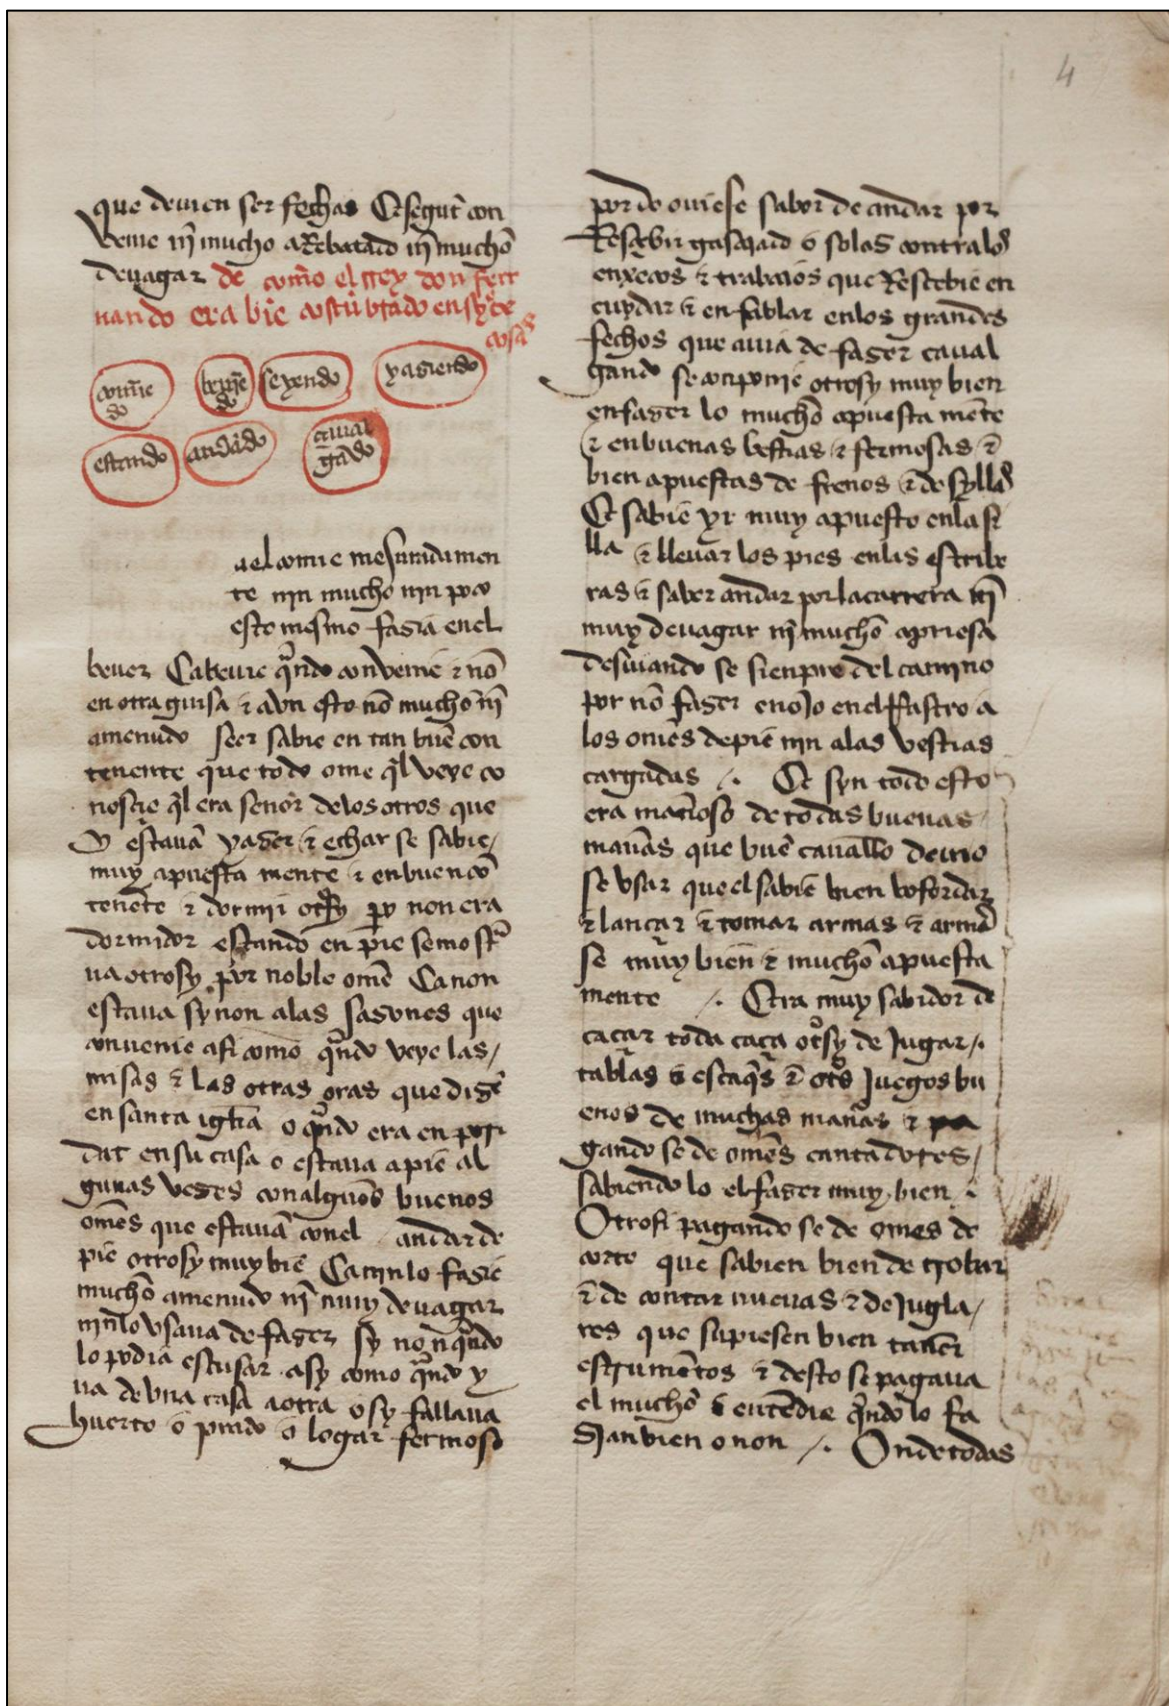 4
que deuien ser fechas E segut con
viene nĩ mucho aRebatado nĩ mucho
de vagar de como el rrey don ferr
nando era biẽ costũbrado en syete
cosas
comiẽ
do
beuiẽ
do
seyendo
yaziendo
estando
andãdo
caual
gãdo
a el comie mesurada men
te nin mucho nin poco
esto mesmo fazia en el
beuer Ca beuie q̃ndo convenie & nõ
en otra guisa & avn esto nõ mucho nĩ
amenudo seer sabie en tan buẽ con
tenente que todo ome q̃l veye co
noscie q̃l era señor delos otros que
y estauã yazer & echar se sabie /
muy apuesta mente & en buen cõ
tenẽte & dormir otrsy po non era
dormidor estando en pie se mostr̃
ua otrosy por noble ome Ca non
estaua sy non alas sazones que
conuenie asi como q̃ndo veye las /
misas & las otras oras que dizẽ
en santa igl̃ia o q̃ndo era en pori
dat en su casa o estaua a pie al
gunas vezes con algunõs buenos
omẽs que estauã conel andar de
pie otrosy muy biẽ Ca nin lo fazie
mucho amenudo nĩ muy de vagar
nin lo vsaua de fazer sy non q̃ndo
lo podia escusar asy como q̃ndo y
ua de vna casa a otra o sy fallaua
huerto o prado o logar fermoso
por do ouiese sabor de andar por
Resçebir gasajado o solas contra los
enxecos & trabaios que Rescebie en
cuydar & en fablar enlos grandes
fechos que auia de fazer caual
gando se conponie otrosy muy bien
en fazer lo mucho apuesta mẽte
& en buenas bestias & fermosas &
bien apuestas de frenos & de syllas
E sabie yr muy apuesto enla si
lla & lleuar los pies enlas estribe
ras & saber andar por la carrera nĩ
muy de vagar nĩ mucho apriesa
desuiando se sienpre del camino
por nõ fazer enojo en el Rastro a
los omẽs de pie nin alas vestias
cargadas /. E syn todo esto
era mañoso de todas buenas
mañas que buẽ cauallo deuio
se vsar que el sabie bien bofordar
& lançar & tomar armas & armar
se muy bien & mucho apuesta
mente /. Era muy sabidor de
caçar toda caça otrsy de Jugar /.
tablas & escaq̃s & otrs Juegos bu
enos de muchas mañas & pa
gando se de omẽs cantadores /
sabiendo lo el fazer muy bien .
Otrosi pagando se de omes de
corte que sabien bien de trobar
& de contar nueuas & de Jugla /
res que supiesen bien tañer
estrumẽtos & desto se pagaua
el mucho & entẽdie q̃ndo lo fa
zian bien o non /. Onde todas